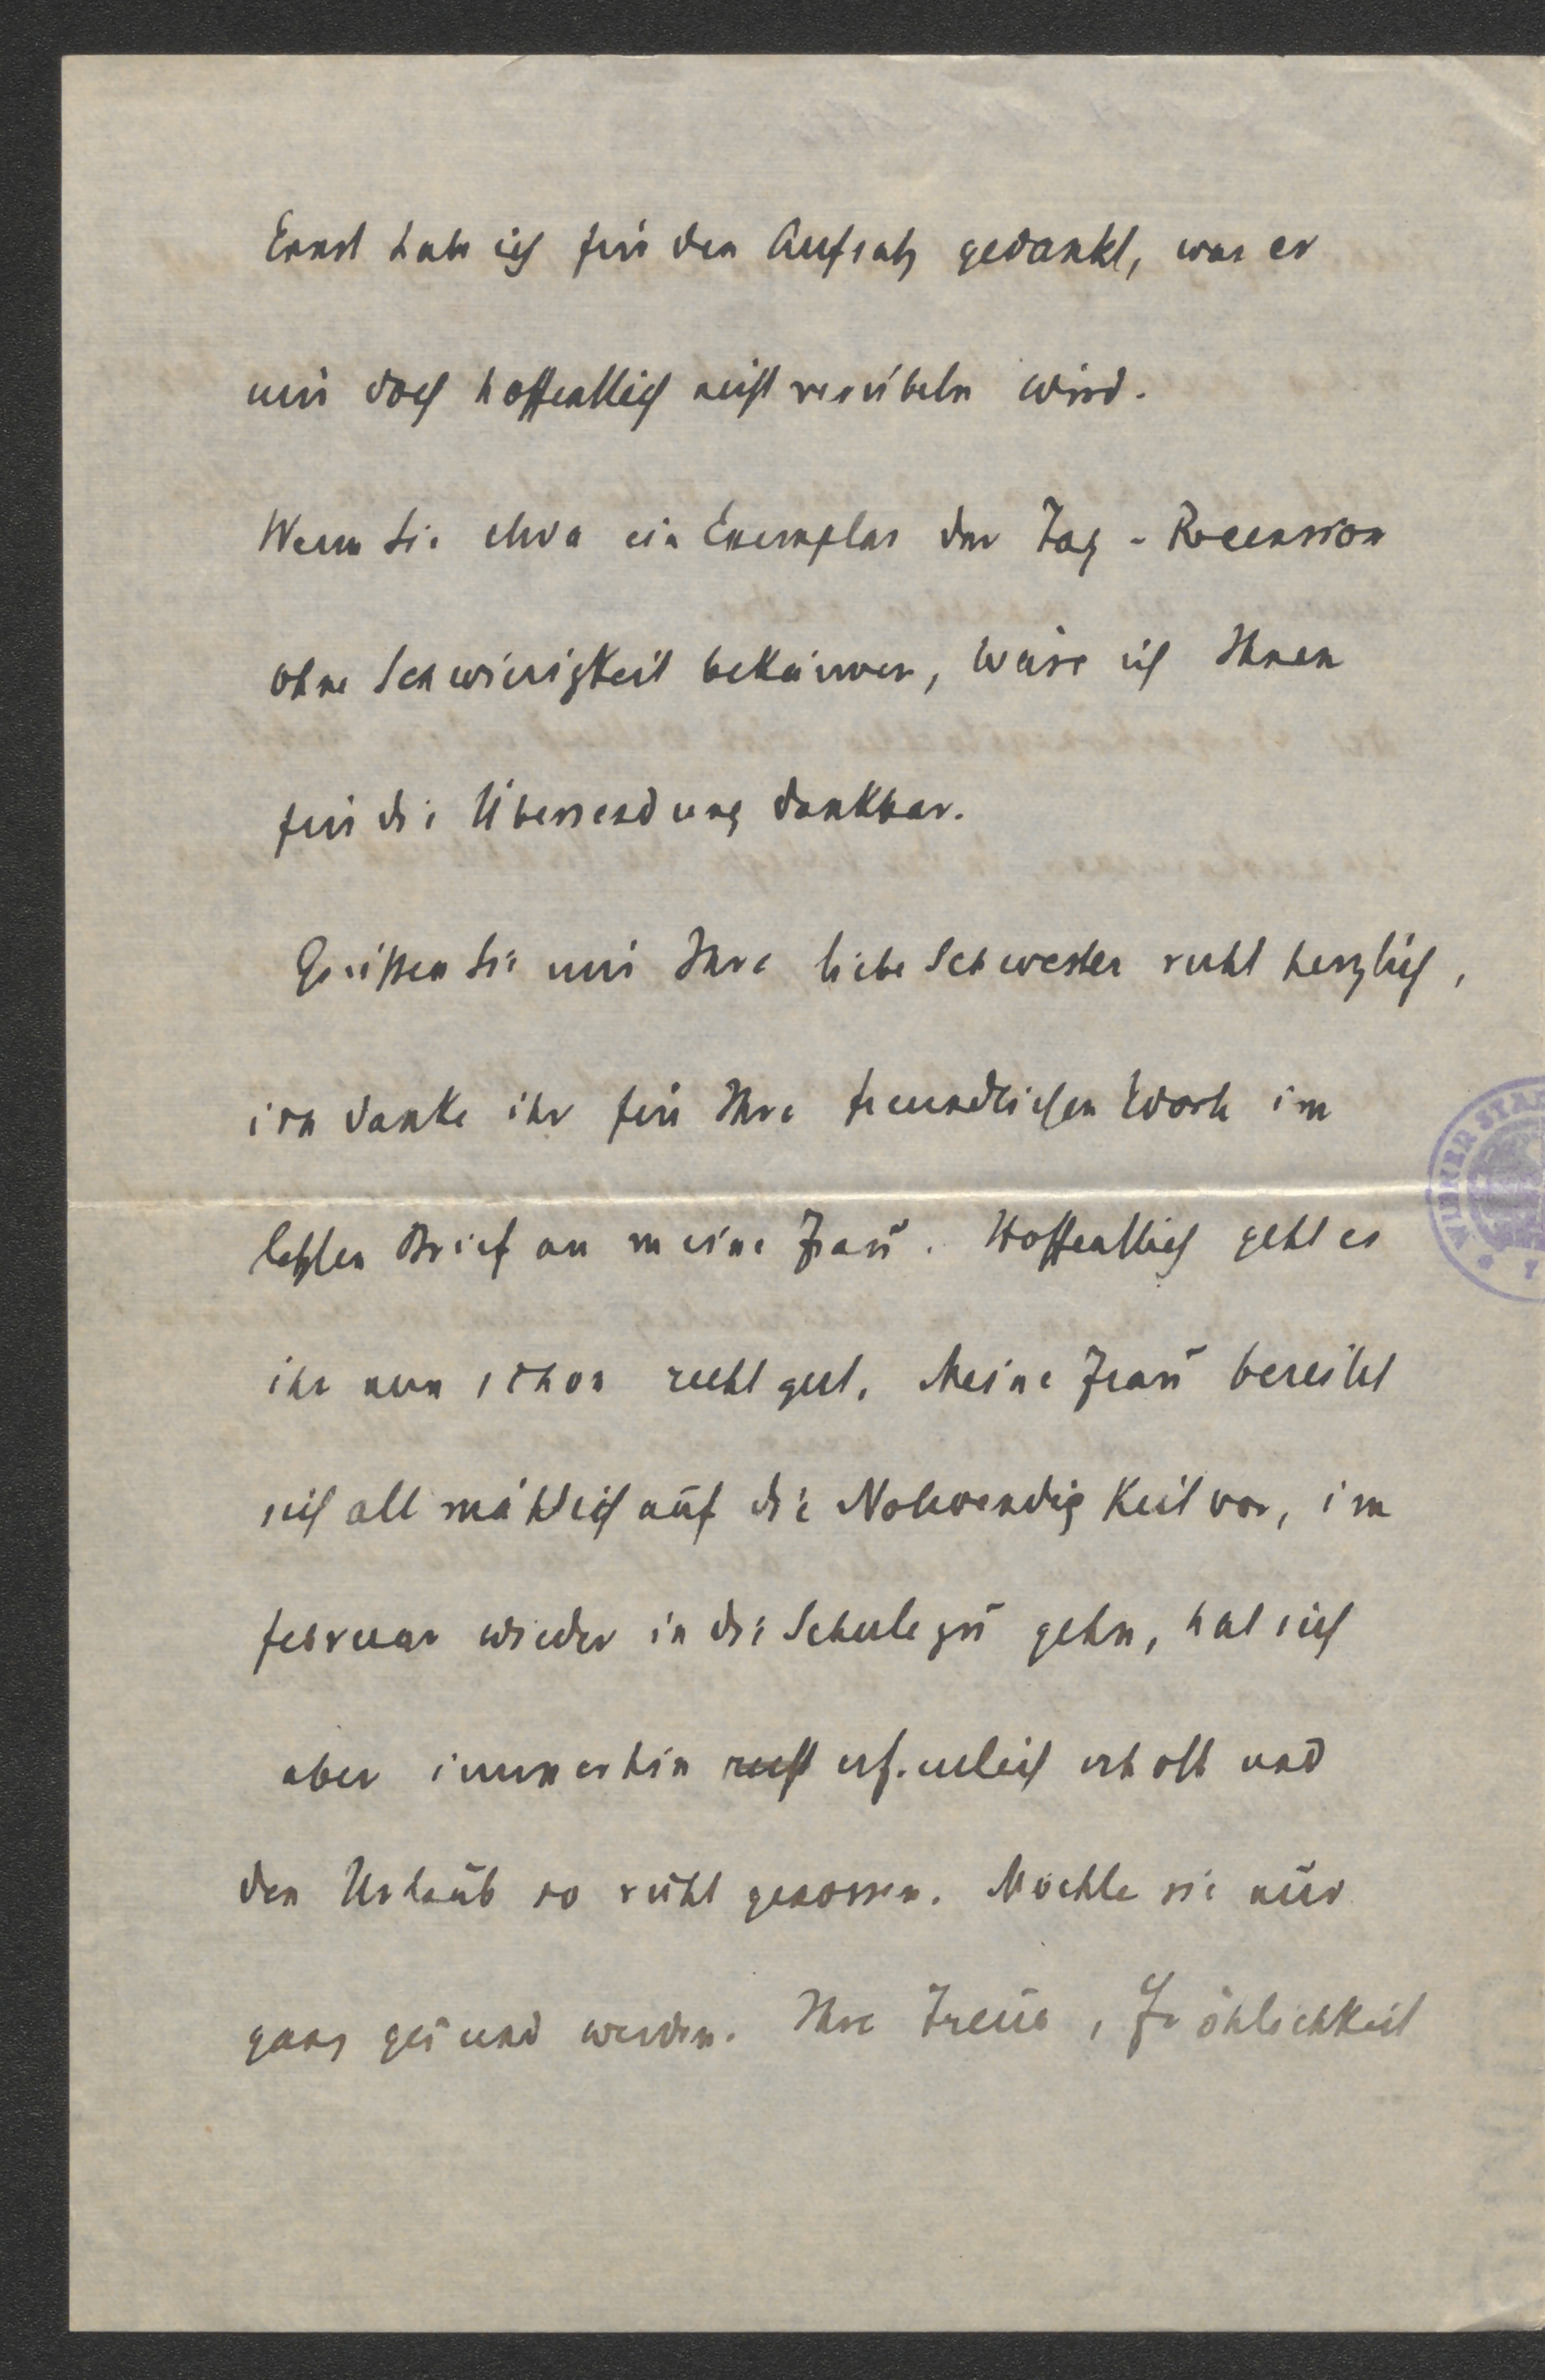 Ernst habe ich für den Aufsatz gedankt, was er
mir doch hoffentlich nicht verübeln wird.
Wenn Sie etwa ein Exemplar der Tag-Recension
ohne Schwierigkeit bekämen, wäre ich Ihnen
für die Übersendung dankbar.
Grüssen Sie mir Ihre liebe Schwester recht herzlich,
ich danke ihr für Ihre freundlichen Worte im
letzten Brief an meine Frau. Hoffentlich geht es
ihr nun schon recht gut. Meine Frau bereitet
sich allmählich auf die Notwendigkeit vor, im
Februar wieder in die Schule zu gehn, hat sich
aber immerhin recht erfreulich erholt und
den Urlaub so recht genossen. Möchte sie nur
ganz gesund werden. Ihre Treue, Fröhlichkeit
WIENER STA